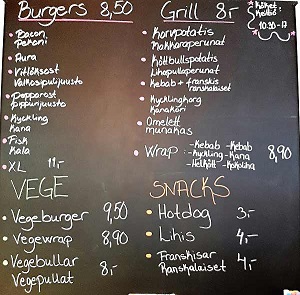 Burgers 8,50
Bacon
Pekoni
Aura
Vitlöksost
Valkosipulijuusto
Pepparost
Pippurijuusto
Kyckling
Kana
Fisk
Kala
XL 11,-
VEGE
Vegeburger 9,50
Vegewrap 8,90
Vegebullar
Vegepullat 8,-
Grill 8,-
Köket
Keittiö
10.30-17
Korvpotatis
Makkaraperunat
Köttbullspotatis
Lihapullaperunat
Kebab + franskis
ranskalaiset
Kycklingkorg
Kanakori
Omelett
munakas
Wrap: -Kebab -Kebab
-Kyckling -Kana
-Helkött -Kokoliha
8,90
SNACKS
Hotdog 3,-
Lihis 4,-
Franskisar
Ranskalaiset 4,-